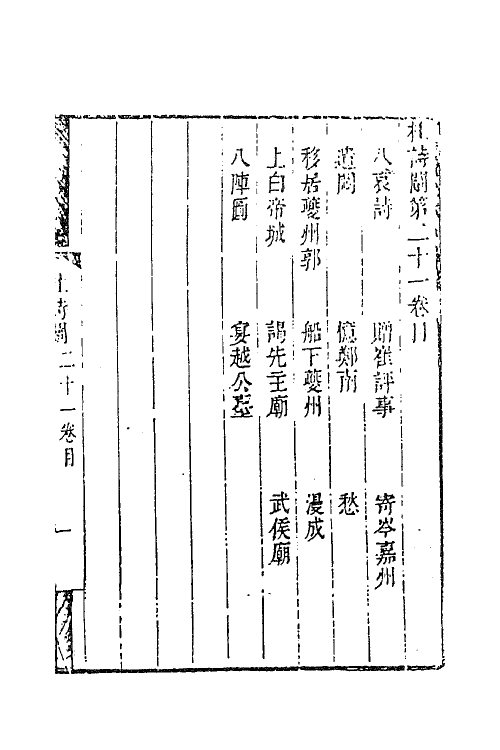 杜詩闡第二十一卷目
八哀詩 贈崔評事 寄岑嘉州
遣悶 憶鄭南 愁
移居夔州郭 船下夔州 漫成
上白帝城 謁先主廟 武侯廟
八陣圖 宴越公堂
杜詩闡 二十一卷目 一